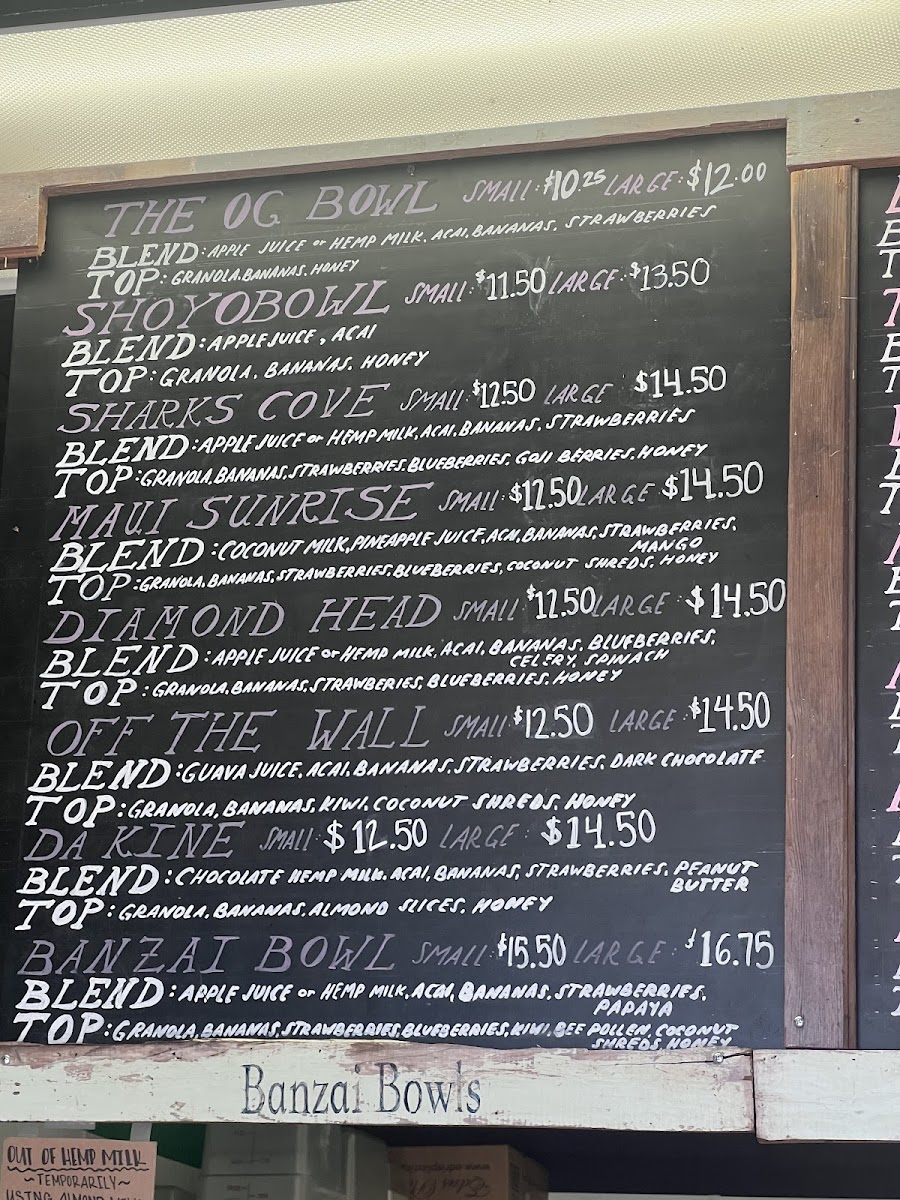 THE OG BOWL SMALL: $10.25 LARGE: $12.00
BLEND: APPLE JUICE or HEMP MILK, ACAI, BANANAS, STRAWBERRIES
TOP: GRANOLA, BANANAS, HONEY
SHOYOBOWL SMALL: $11.50 LARGE: $13.50
BLEND: APPLE JUICE, ACAI
TOP: GRANOLA, BANANAS, HONEY
SHARKS COVE SMALL: $12.50 LARGE $14.50
BLEND: APPLE JUICE or HEMP MILK, ACAI, BANANAS, STRAWBERRIES
TOP: GRANOLA, BANANAS, STRAWBERRIES, BLUEBERRIES, GOJI BERRIES, HONEY
MAUI SUNRISE SMALL: $12.50 LARGE $14.50
BLEND: COCONUT MILK, PINEAPPLE JUICE, ACAI, BANANAS, STRAWBERRIES,
MANGO
TOP: GRANOLA, BANANAS, STRAWBERRIES, BLUEBERRIES, COCONUT SHREDS, HONEY
DIAMOND HEAD SMALL: $12.50 LARGE: $14.50
BLEND: APPLE JUICE or HEMP MILK, ACAI, BANANAS, BLUEBERRIES,
CELERY, SPINACH
TOP: GRANOLA, BANANAS, STRAWBERIES, BLUEBERRIES, HONEY
OFF THE WALL SMALL: $12.50 LARGE: $14.50
BLEND: GUAVA JUICE, ACAI, BANANAS, STRAWBERRIES, DARK CHOCOLATE
TOP: GRANOLA, BANANAS, KIWI, COCONUT SHREDS, HONEY
DA KINE SMALL: $12.50 LARGE: $14.50
BLEND: CHOCOLATE HEMP MILK, ACAI, BANANAS, STRAWBERRIES, PEANUT
BUTTER
TOP: GRANOLA, BANANAS, ALMOND SLICES, HONEY
BANZAI BOWL SMALL: $15.50 LARGE: $16.75
BLEND: APPLE JUICE or HEMP MILK, ACAI, BANANAS, STRAWBERRIES,
PAPAYA
TOP: GRANOLA, BANANAS, STRAWBERRIES, BLUEBERRIES, KIWI, BEE POLLEN, COCONUT
SHREDS, HONEY
Banzai Bowls
OUT OF HEMP MILK
~TEMPORARILY~
USING ALMOND MILK